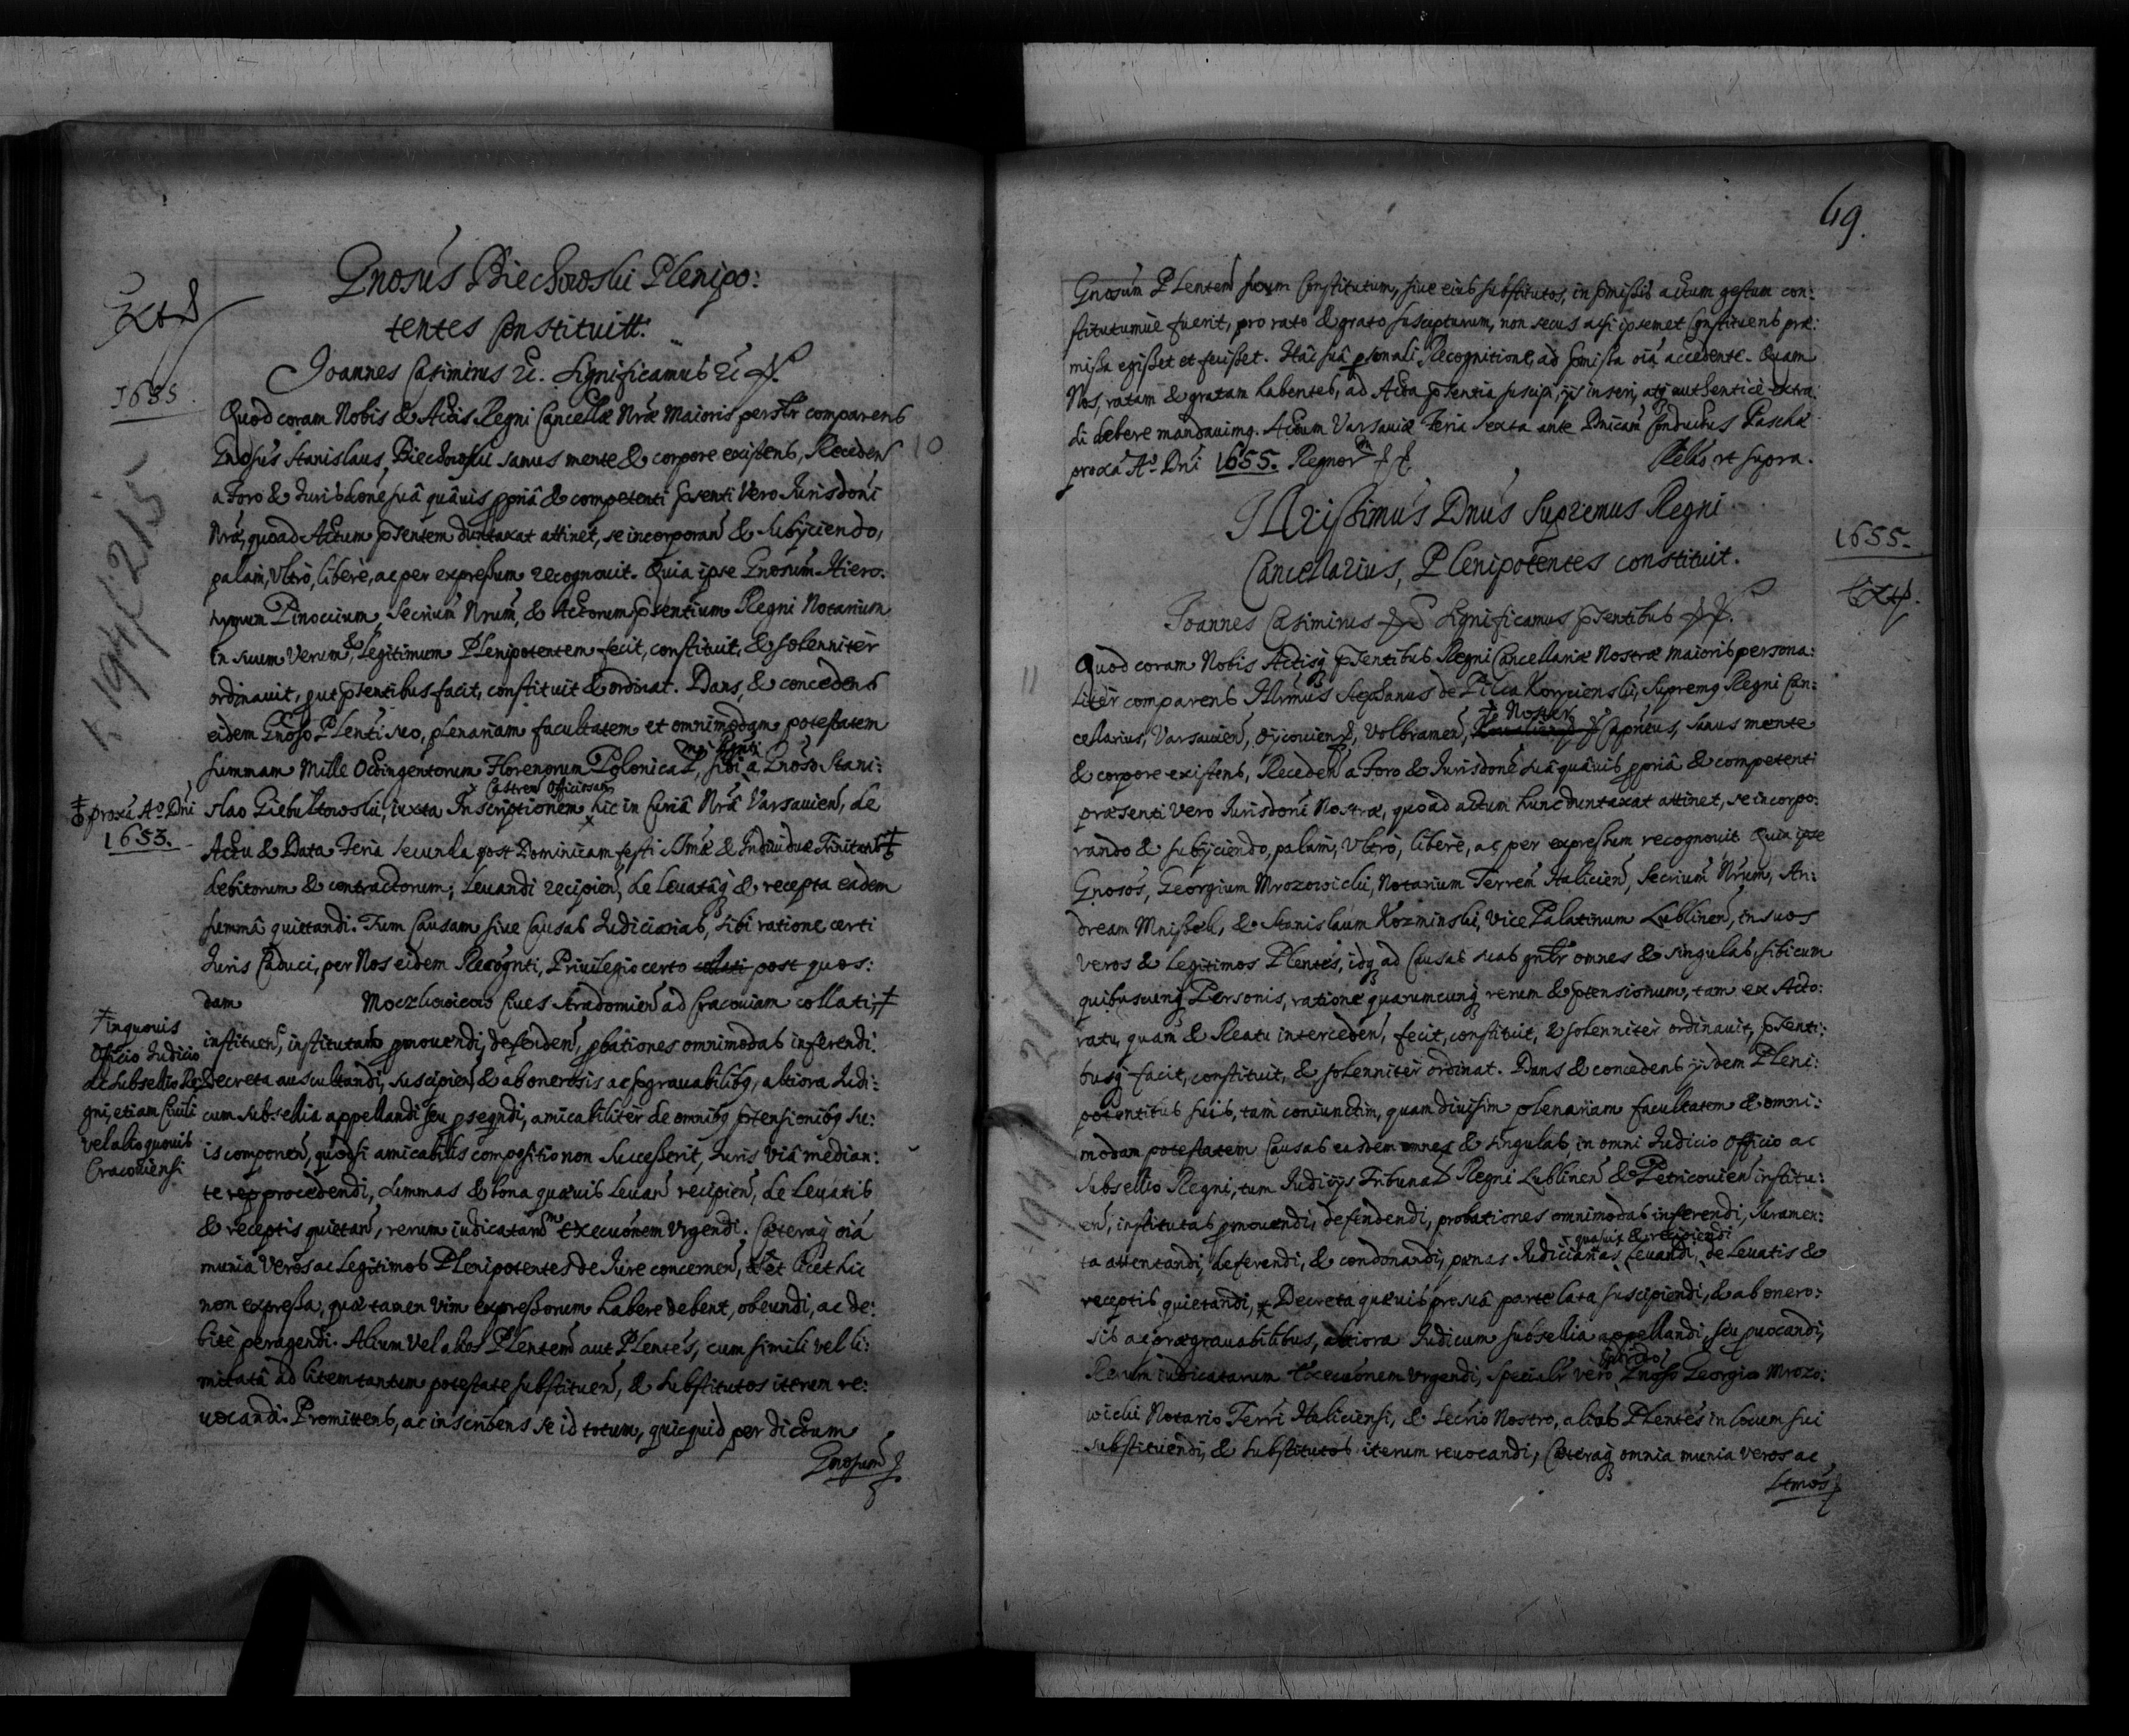 Gnosus Biechowski Plenipo:
tentes Constituitt.
Joannes Casimirus &c. Significamus &c
1655.
Quod coram Nobis & Actis Regni Cancellæ Nræ Maioris persltr comparens
Gnosus Stanislaus Biechowski sanus mente & corpore existens, Receden
10
a Foro & Jurisdone suâ quâuis ppriâ & competenti psenti vero Jurisdoni
Nræ, quoad Actum psentem duntaxat attinet, se incorporan & subijciendo,
palam, vltrò, liberè, ac per expressum recognouit. Quia ipse Gnosum Hiero:
nymum Pinoccium, Secrium Nrum & Actorum psentium Regni Notarium
in suum verum & Legitimum Plenipotentem fecit, constituit, & solenniter
ordinauit, put psentibus facit, constituit & ordinat. Dans & concedens
eidem Gnoso Plenti suo, plenariam facultatem et omnimodam potestatem
summam Mille Octingentorum Florenorum Polonical, sibi a Gnoso Stani:
slao Giebułtowski, iuxta Inscriptionem Castren Officiosam hic in Curiâ Nrâ Varsauien, de
‡ proxa Ao Dni
1653.
Actu & Data Feria secunda post Dominicam festi SSmæ & Indiuiduæ Trinitatis ‡
debitorum & contractorum, leuandi recipien, de leuatâq & recepta eadem
summâ quietandi. Tum Causam siue Causas Judiciarias, sibi ratione certi
Juris Caduci, per Nos eidem Recognti, Priuilegio certo collati post quos:
dam Moczkowicow Ciues Stradomien ad Cracouiam collati, ‡
‡ inquouis
Officio Judicio
ac Subsellio Re:
gni, etiam Ciuili
vel alio quouis
Cracouiensi
instituen, institutam pmouendi, defenden, pbationes omnimodas inferendi.
Decreta auscultandi, suscipien & ab onerosis ac pgrauabilibq, altiora Judi:
cum subsellia appellandi seu psegndi, amicabiliter de omnibq ptensionibq su:
is componen, quod si amicabilis compositio non successerit, Juris viâ median:
te rep procedendi, summas & bona quæuis leuan recipien, de leuatis
& receptis quietan, rerum iudicatarum Execuonem vrgendi. Cæteraq oia
munia veros ac Legitimos Plenipotentes de Jure concernen, & et licet hic
non expressa, quæ tamen vim expressorum habere debent, obeundi, ac de:
bitè peragendi. Alium vel alios Plentem aut Plentes, cum simili vel li:
mitatâ ad litem tantum potestate substituen, & substitutos iterum re:
uocandi. Promittens, ac inscribens se id totum, quicquid per dictum
Gnosum
69.
Gnosum Plentem suum Constitutum, siue eius substitutos, in pmissis actum gestum con:
stitutumue fuerit, pro rato & grato suscepturum, non secus acsi ipsemet Constituens præ:
missa egisset et fecisset. Hâc suâ psonali Recognitione, ad pmissa oia accedente. Quam
Nos, ratam & gratam habentes, ad Acta psentia suscipi, ijs inseri, atq authenticè extra:
di debere mandauimq. Actum Varsauiæ Feria sexta ante Dnicam Conductus Paschæ
proxa Ao Dni 1655. Regnor
Relao vt supra.
Illrissimus Dnus Supremus Regni
Cancellarius, Plenipotentes constituit.
1655.
Joannes Casimirus Significamus psentibus
Quod coram Nobis Actisq psentibus Regni Cancellariæ Nostræ Maioris persona:
11
liter comparens Illrmus Stephanus de Pilca Koryciński, Supremq Regni Can:
cellarius, Varsauien, Oycouien, Volbramen, Noster Capneus, sanus mente
& corpore existens, Receden a Foro & Jurisdone suâ quâuis ppriâ & competenti
præsenti vero Jurisdoni Nostræ, quoad actum hunc duntaxat attinet, se incorpo:
rando & subijciendo, palam, vltrò, liberè, ac per expressum recognouit Quia ipse
Gnosos, Georgium Mrozowicki, Notarium Terrem Halicien, Secrium Nrum, An:
dream Mniszek, & Stanislaum Kozminski, Vice Palatinum Lublinen, in suos
veros & legitimos Plentes, idq ad Causas suas gnltr omnes & singulas, sibi cum
quibuscunq Personis, ratione quarumcunq rerum & ptensionum, tam ex Acto:
ratu, quam & Reatu interceden, fecit, constituit, & solenniter ordinauit, psenti:
busq facit, constituit, & solenniter ordinat. Dans & concedens ijsdem Pleni:
potentibus suis, tam coniunctim, quam diuisim plenariam facultatem & omni:
modam potestatem Causas easdem omnes & singulas, in omni Judicio Officio ac
Subsellio Regni, tum Judicijs Tribunal Regni Lublinen & Petricouien institu:
en, institutas pmouendi, defendendi, probationes omnimodas inferendi, Juramen:
ta attentandi, deferendi, & condonandi, pœnas Judiciarias quasuis & recipiendi leuandi, de leuatis &
receptis quietandi, Decreta quæuis pro suâ parte lata suscipiendi, & ab onero:
sis ac prægrauabilibus, altiora Judicum subsellia appellandi, seu puocandi,
Rerum iudicatarum Execuonem vrgendi, specialr vero Gnoso Georgio Mrozo:
wicki Notario Terri Haliciensi, & Secrio Nostro, alios Plentes in locum sui
substituendi, & substitutos iterum reuocandi, Cæteraq omnia munia veros ac
Ltmos